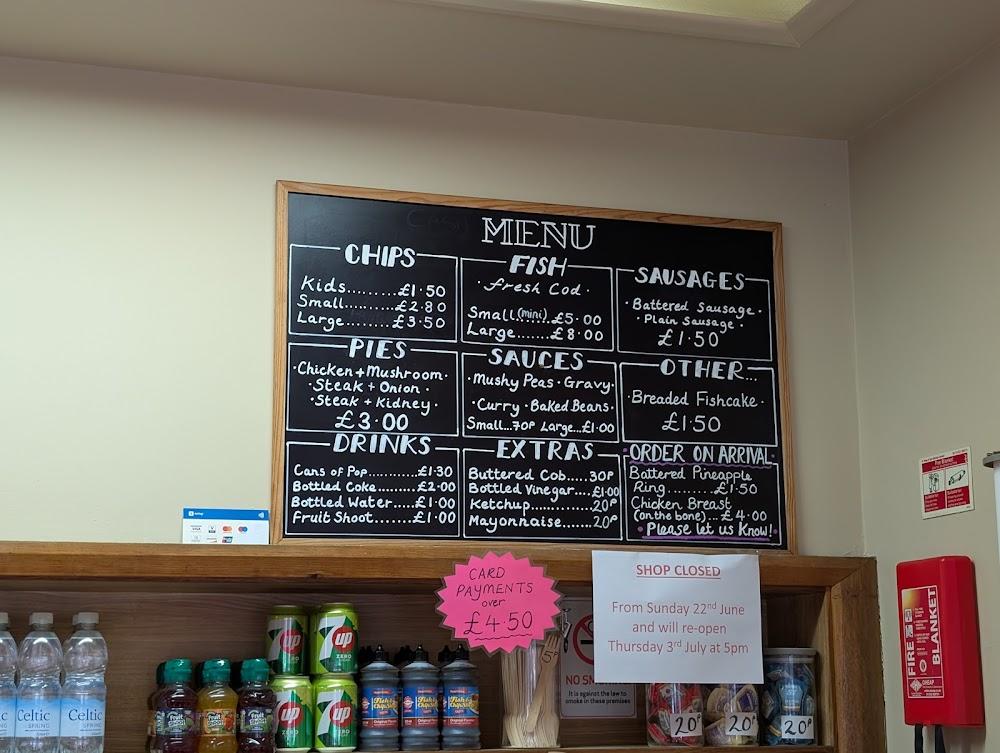 MENU
CHIPS
Kids.........£1·50
Small.........£2·80
Large........£3·50
FISH
·fresh Cod·
Small(mini)......£5·00
Large.......£8·00
SAUSAGES
·Battered Sausage·
·Plain Sausage·
£1·50
PIES
·Chicken+Mushroom·
·Steak + Onion·
·Steak + Kidney·
£3·00
SAUCES
·Mushy Peas·Gravy·
·Curry·Baked Beans·
Small...70P Large...£1·00
OTHER...
·Breaded Fishcake·
£1·50
DRINKS
Cans of Pop............£1·30
Bottled Coke........£2·00
Bottled Water.....£1·00
Fruit Shoot.......£1·00
EXTRAS
Buttered Cob...30P
Bottled Vinegar....£1·00
Ketchup...............20P
Mayonnaise.......20P
·ORDER ON ARRIVAL·
Battered Pineapple
Ring..........£1·50
Chicken Breast
(on the bone)...£4·00
·Please let us Know!
CARD
PAYMENTS
over
£4·50
SHOP CLOSED
From Sunday 22nd June
and will re-open
Thursday 3rd July at 5pm
FIRE
BLANKET
Celtic
SPRING
Celtic
SPRING
Celtic
Fruit
Fruit
Fruit
7up
ZERO
7up
ZERO
7up
7up
Fish &
Chip
NO SM
It is against the law to
smoke in these premises
20P
20P
20P